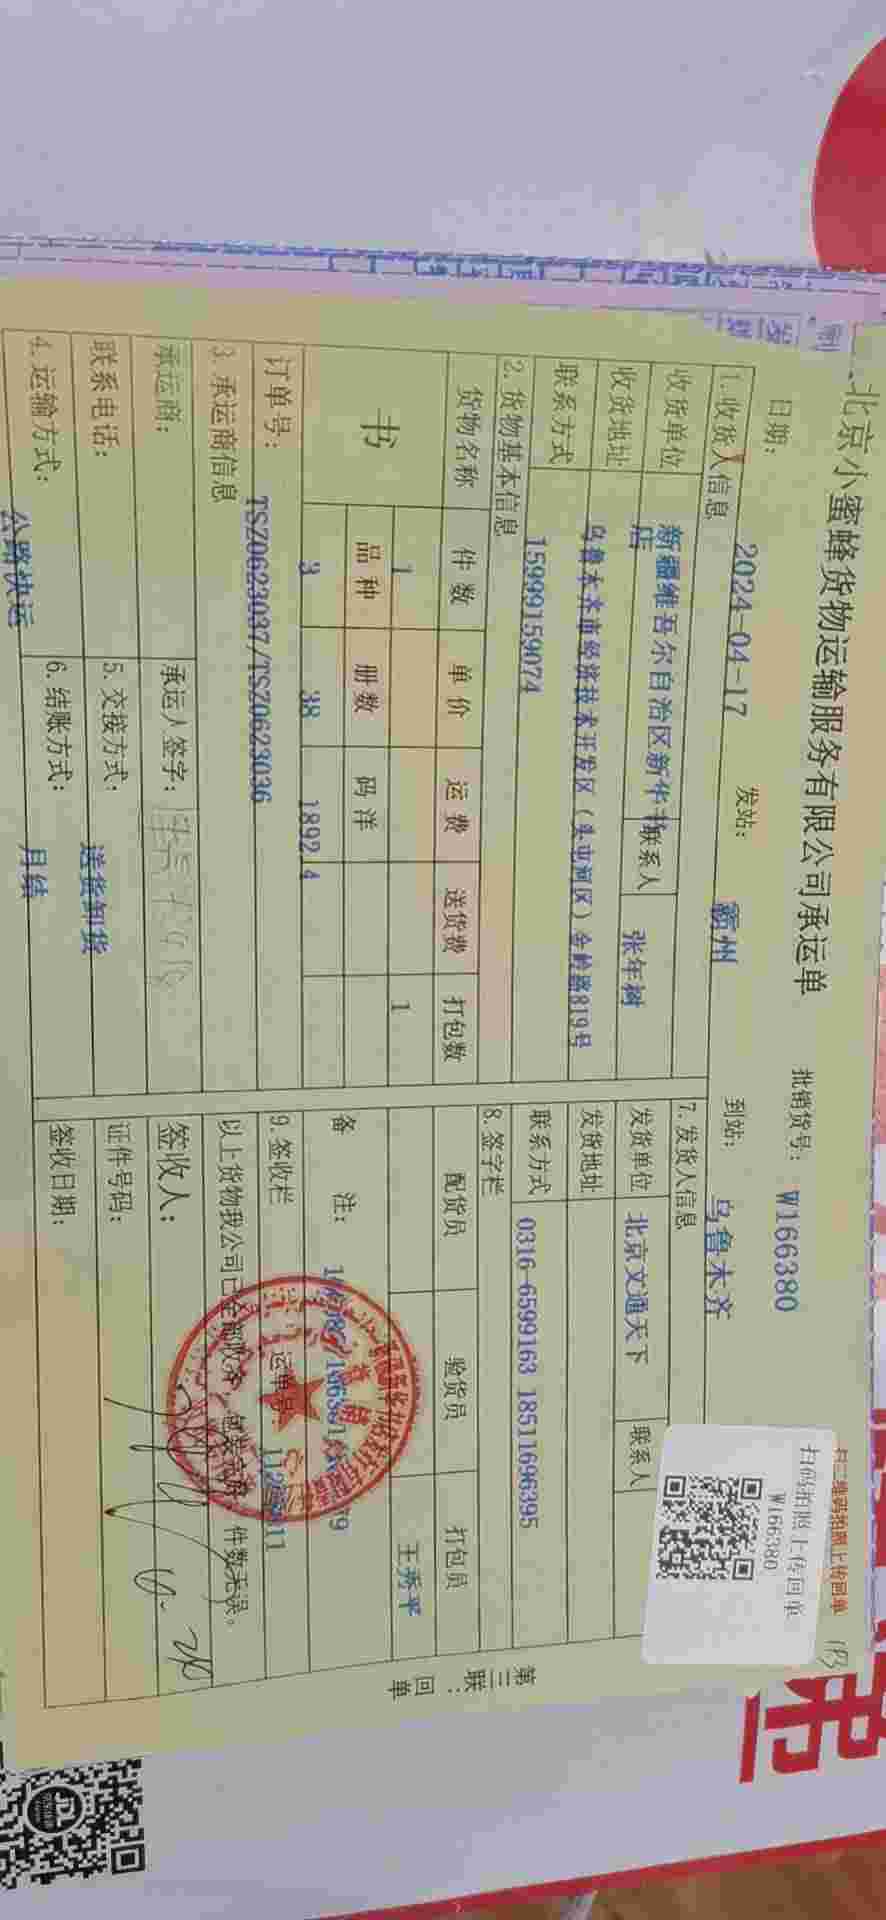 北京小蜜蜂货物运输服务有限公司承运单
扫二维码拍照上传回单
扫码拍照上传回单
W166380
批销货号: W166380
日期: 2024-04-17 发站: 霸州 到站: 乌鲁木齐
1. 收货人信息
收货单位 新疆维吾尔自治区新华书店 联系人 张年树
收货地址 乌鲁木齐市经济技术开发区（头屯河区）金岭路819号
联系方式 15999159074
2. 货物基本信息
货物名称 件数 单价 运费 送货费 打包数
书 1 1
品种 册数 码洋
3 38 1892.4
订单号: TSZ0623037/TSZ0623036
3. 承运商信息
承运商: 承运人签字:
联系电话: 5. 交接方式: 送货卸货
4. 运输方式: 公路快运 6. 结账方式: 月结
7. 发货人信息
发货单位 北京文通天下 联系人
发货地址
联系方式 0316-6599163 18511696395
8. 签字栏
配货员 验货员 打包员
王秀平
备 注:
9. 签收栏 运单号:
以上货物我公司已全部收净，包装完好，件数无误。
签收人:
证件号码:
签收日期:
第三联：回单